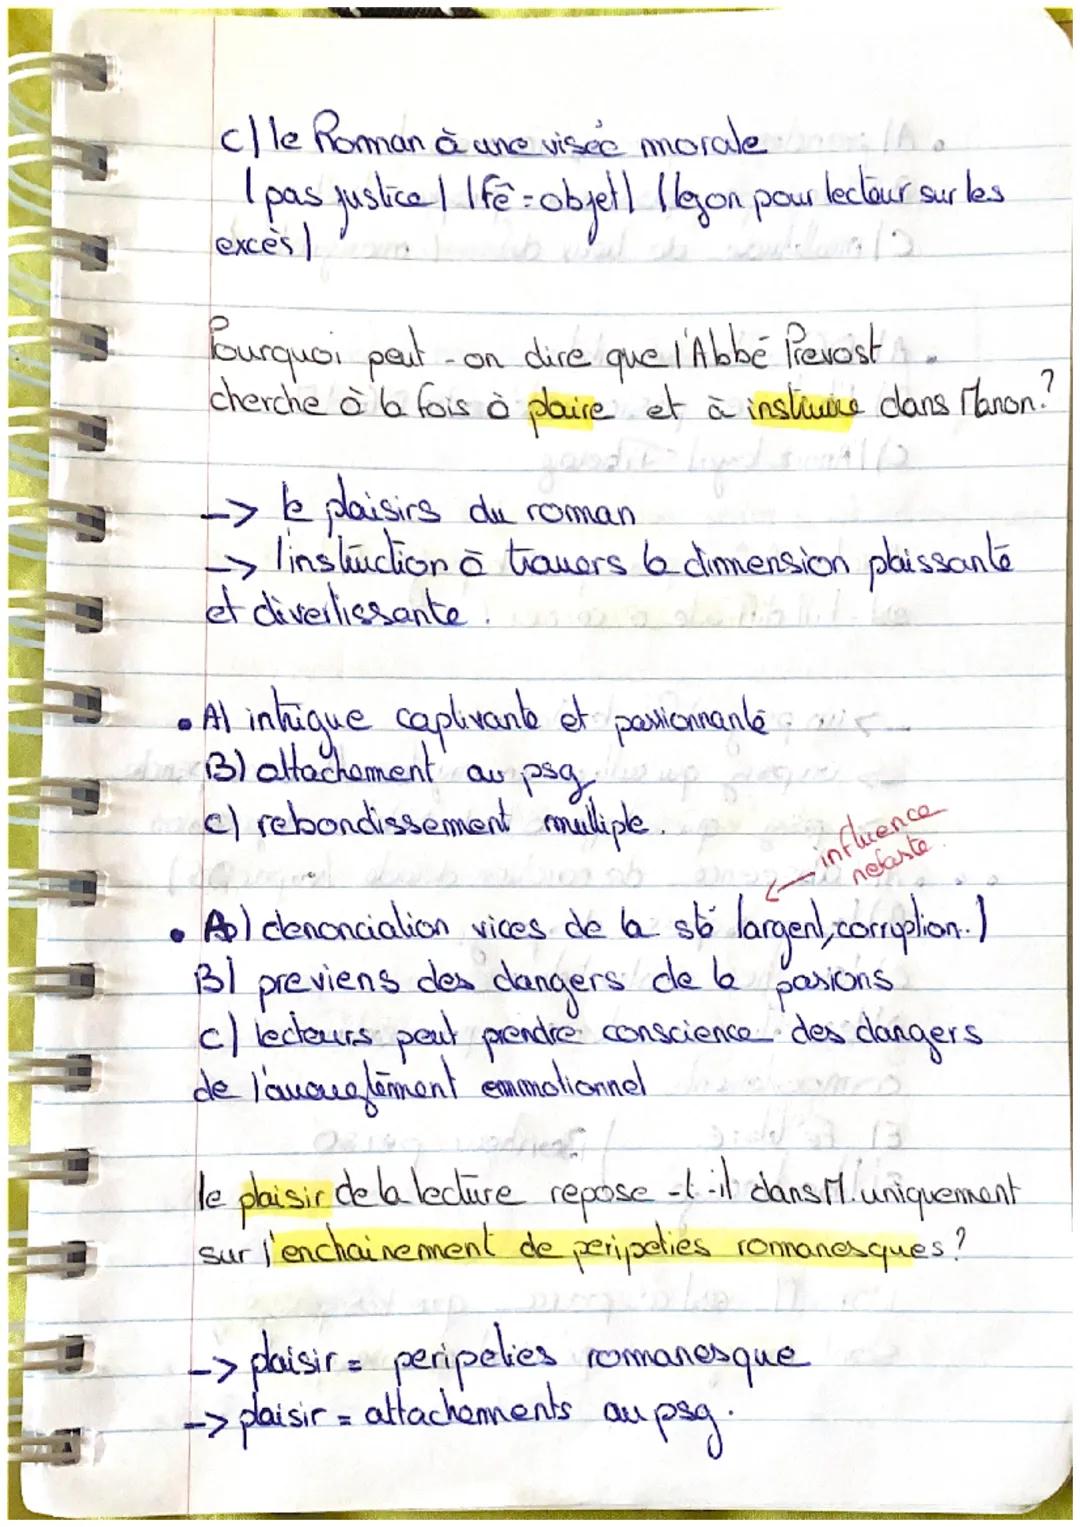 c) le Roman à une visée morale
(pas justice) (fê = objet) (leçon pour lecteur sur les
excès)
Pourquoi peut-on dire que l'Abbé Prevost
cherche à la fois à plaire et à instruire dans Manon?
-> le plaisirs du roman
-> l'instruction à travers la dimension plaissante
et divertissante.
• A) intrigue captivante et passionnante
B) attachement au psg
c) rebondissement multiple.
influence
nefaste.
• A) denonciation vices de la sté (argent, corruption..)
B) previens des dangers de la pasions
c) lecteurs peut prendre conscience des dangers
de l'aveuglement emmotionnel
le plaisir de la lecture repose-t-il dans M. uniquement
sur l'enchainement de peripeties romanesques?
-> plaisir = peripeties romanesque
-> plaisir = attachements au psg.